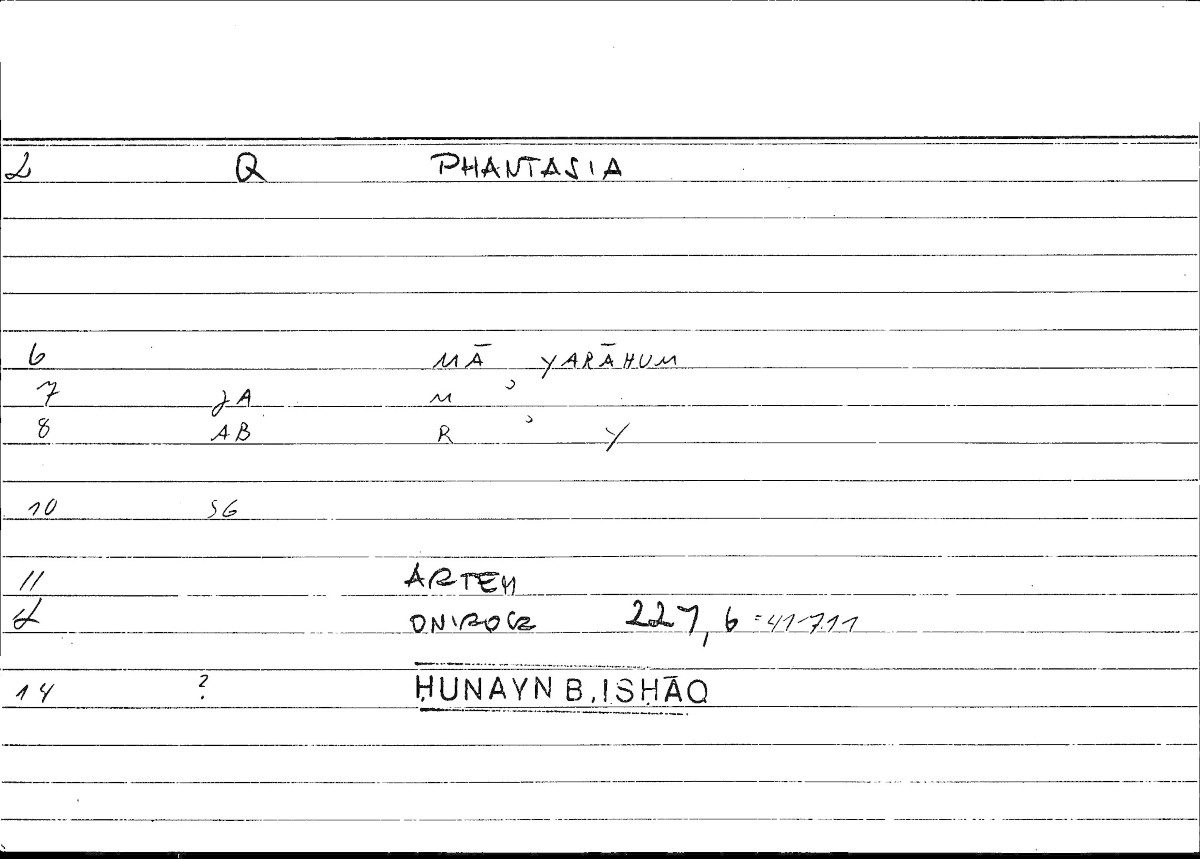 2 Q PHANTASIA
6 MĀ YARĀHUM
7 JA M ʾ
8 AB R ʾ Y
10 SG
11 ARTEM
2 ONIROCR 227, 6 = 41-7.11
14 ? ḤUNAYN B. ISḤĀQ